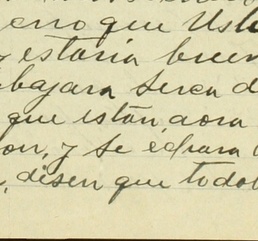 erro que Uste
y estaria buen
bajara serca d
que están, aora
on, y se echara
, disen que todo